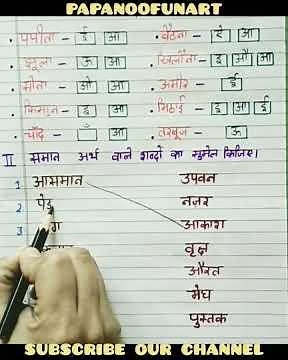 PAPANOOFUNART
• पपीता – ई आ • बैठना – ऐ आ
• झूला – ऊ आ • खिलौना – इ औ आ
• सोना – ओ आ • अमीर – ई
• किसान – इ आ • मिठाई – इ आ ई
• चाँद – ँ आ • तरबूज – ऊ
II समान अर्थ वाले शब्दों का सुमेल किजिए।
1 आसमान उपवन
2 पेड़ नज़र
3 आकाश
वृक्ष
औरत
मेघ
पुस्तक
SUBSCRIBE OUR CHANNEL